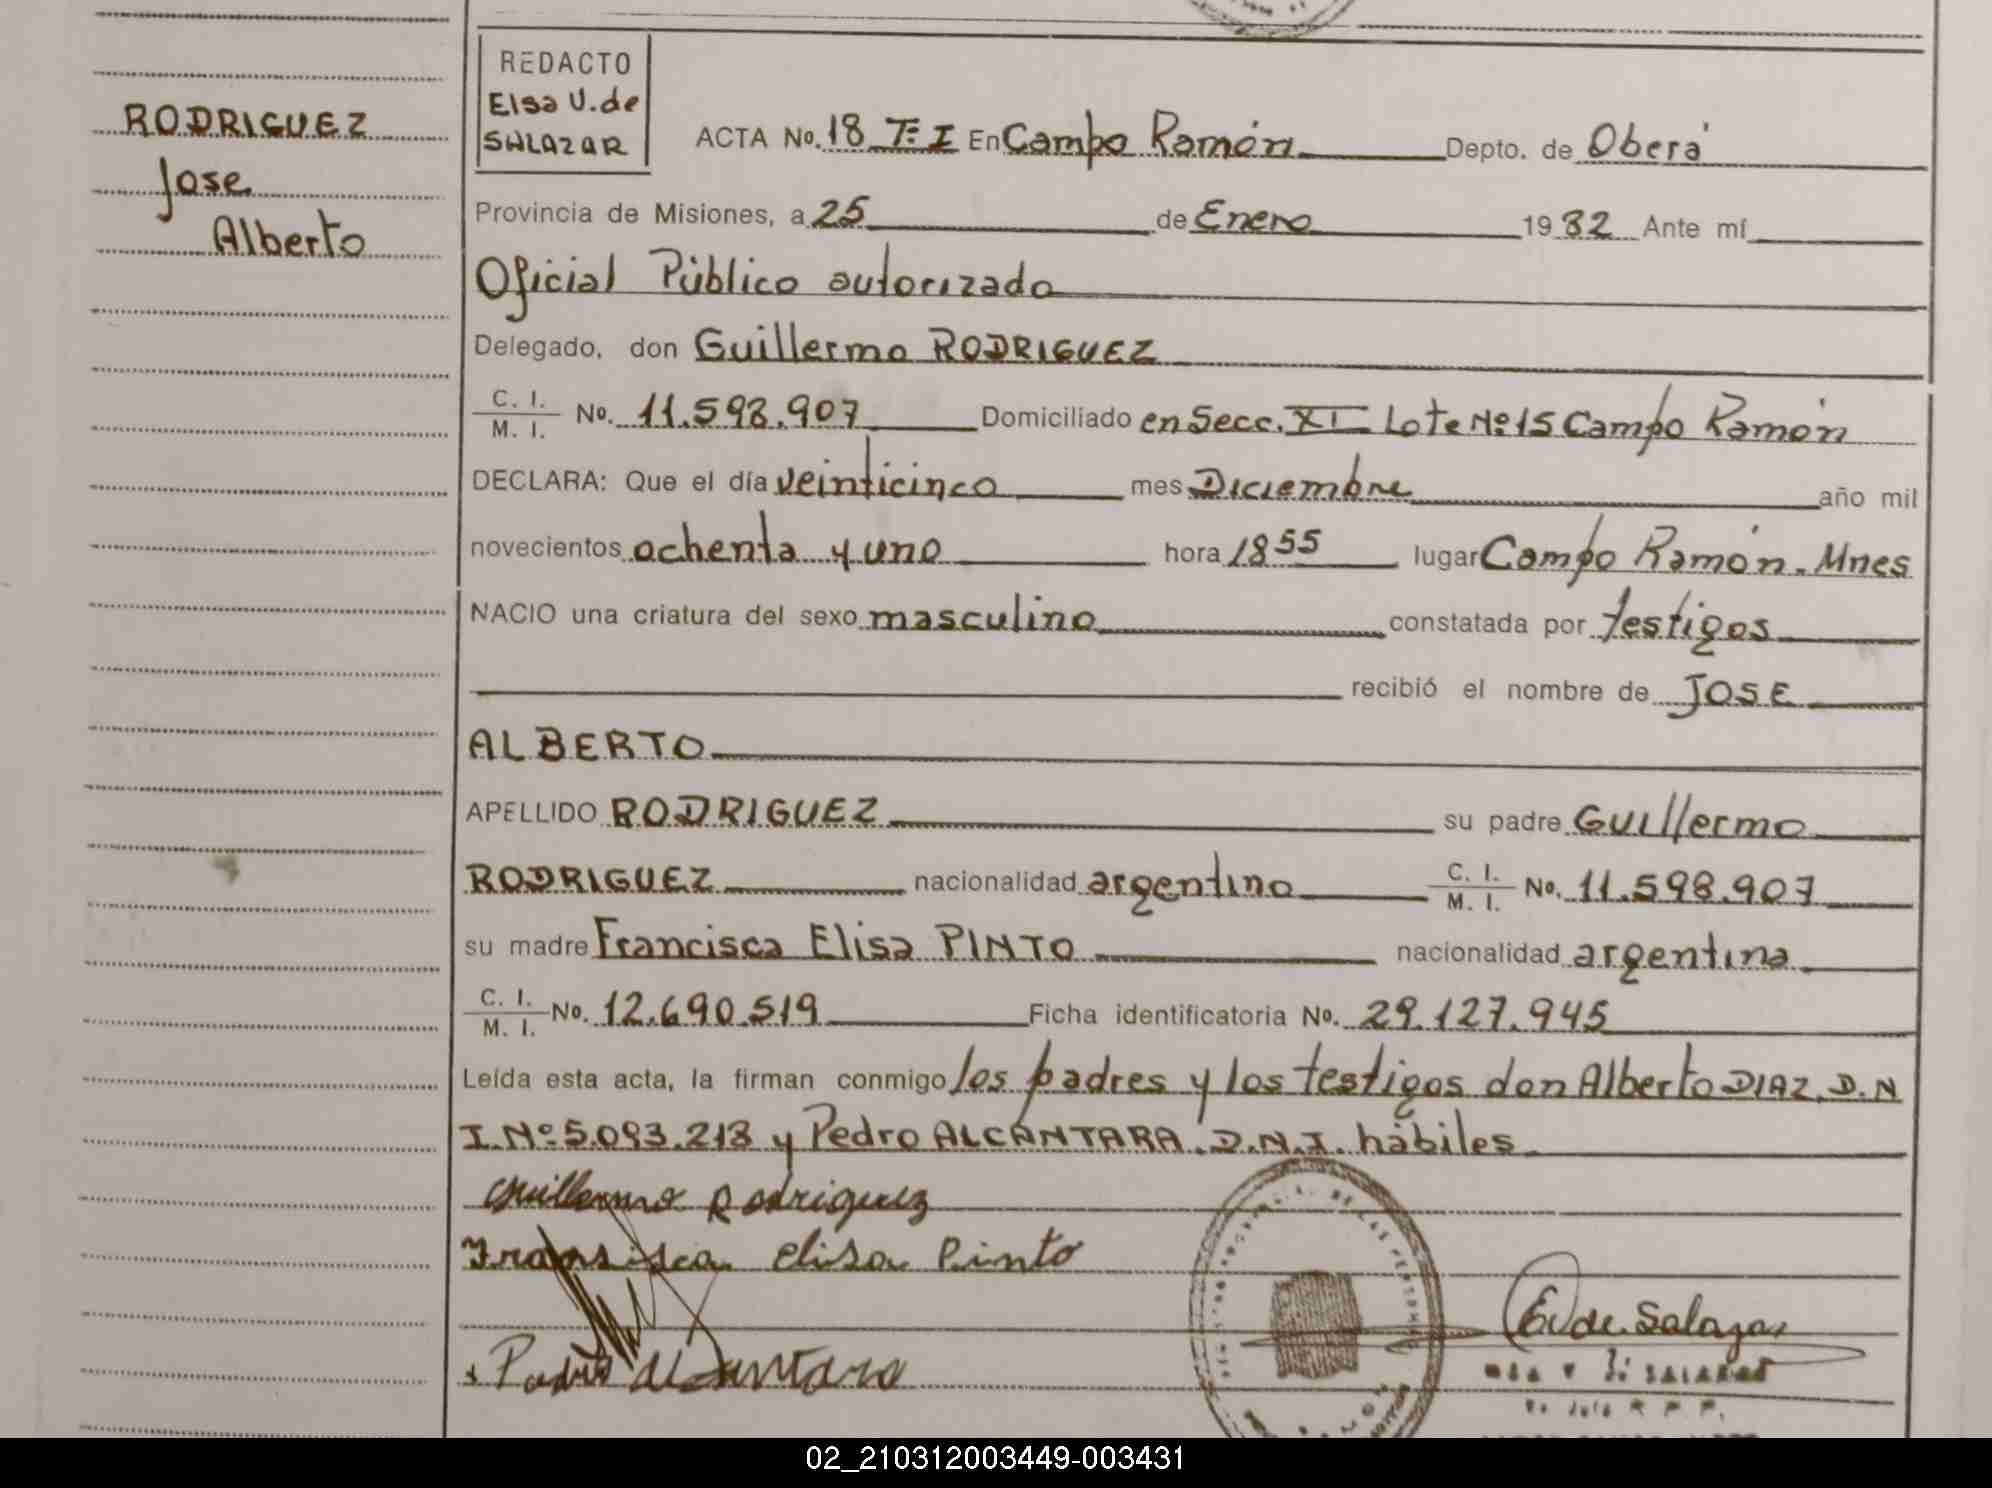 REDACTO
Elsa V. de
SALAZAR
RODRIGUEZ
Jose
Alberto
ACTA No. 18 T: I En Campo Ramón Depto. de Oberá
Provincia de Misiones, a 25 de Enero 1982 Ante mí
Oficial Público autorizado
Delegado, don Guillermo RODRIGUEZ
C. I. / M. I. No. 11.598.907 Domiciliado en Secc. XI Lote Nº 15 Campo Ramón
DECLARA: Que el día veinticinco mes Diciembre año mil
novecientos ochenta y uno hora 18 55 lugar Campo Ramón. Mnes
NACIO una criatura del sexo masculino constatada por testigos
recibió el nombre de JOSE
ALBERTO
APELLIDO RODRIGUEZ su padre Guillermo
RODRIGUEZ nacionalidad argentino C. I. / M. I. No. 11.598.907
su madre Francisca Elisa PINTO nacionalidad argentina
C. I. / M. I. No. 12.690.519 Ficha identificatoria No. 29.127.945
Leída esta acta, la firman conmigo los padres y los testigos don Alberto DIAZ, D.N
I. Nº 5.093.218 y Pedro ALCANTARA. D.N.I. hábiles
Guillermo Rodriguez
Fransisca elisa Pinto
Pedro Alcantara
E V de Salazar
02_210312003449-003431